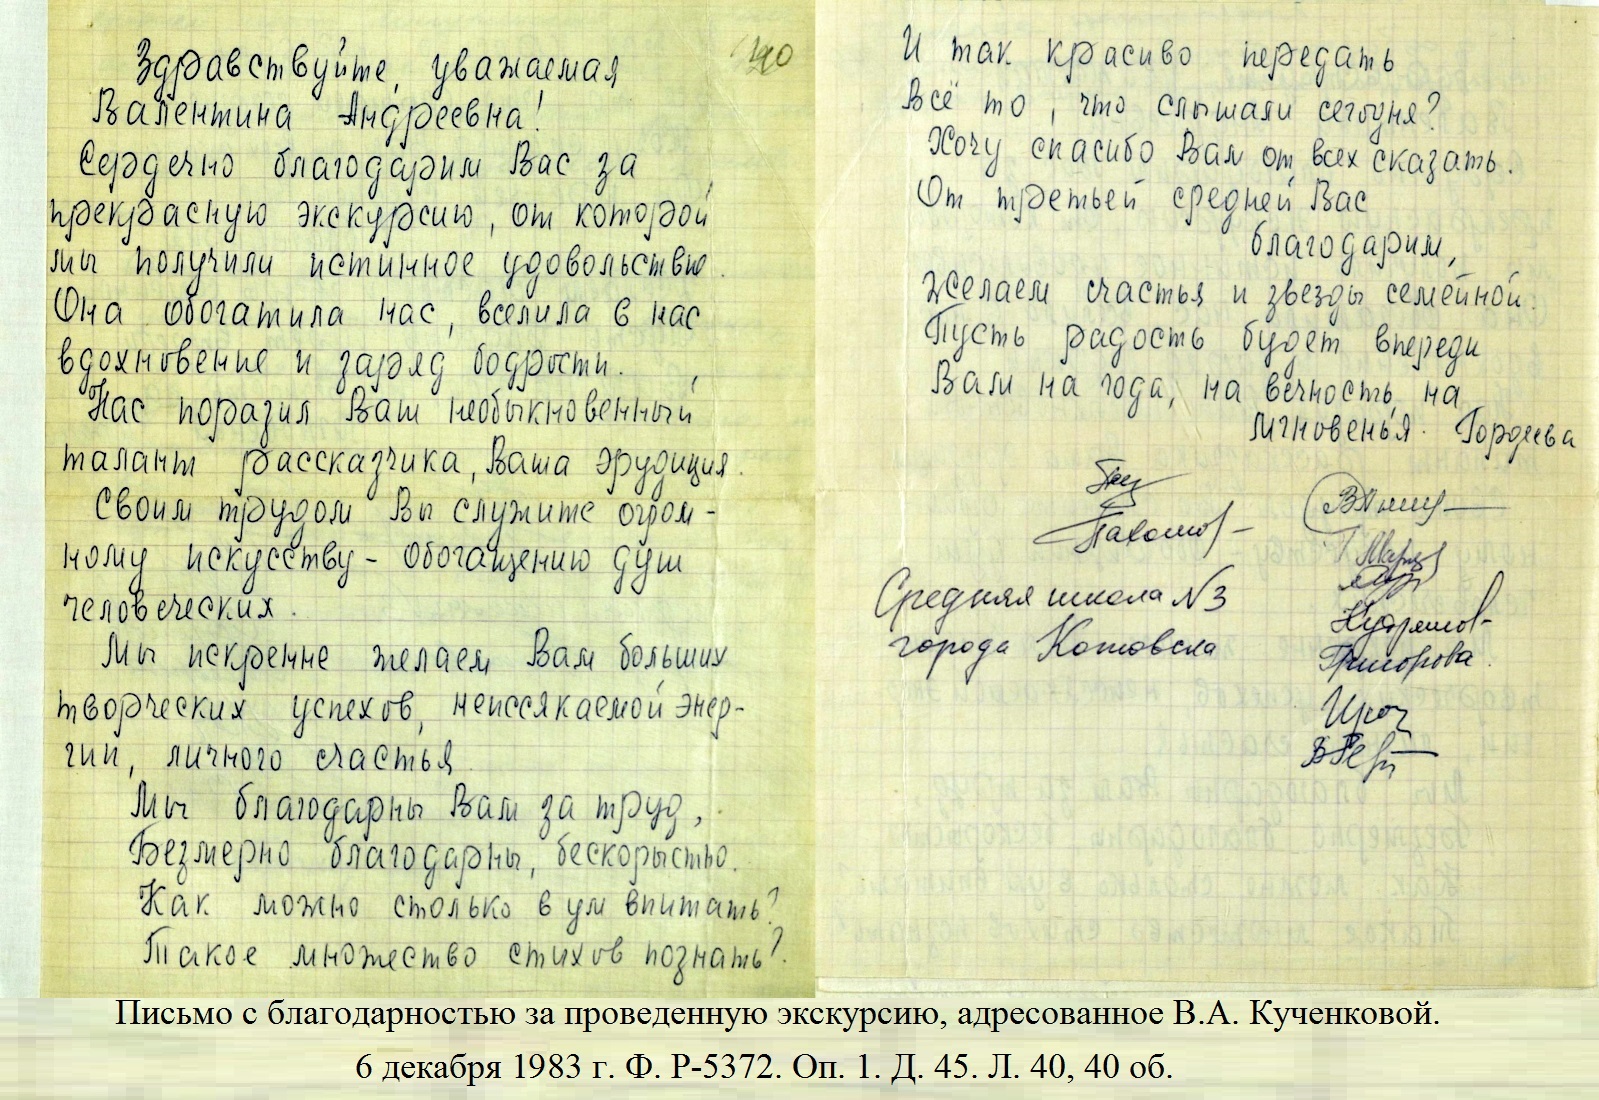 40
Здравствуйте, уважаемая
Валентина Андреевна!
Сердечно благодарим Вас за
прекрасную экскурсию, от которой
мы получили истинное удовольствие.
Она обогатила нас, вселила в нас
вдохновение и заряд бодрости.
Нас поразил Ваш необыкновенный
талант рассказчика, Ваша эрудиция.
Своим трудом Вы служите огром-
ному искусству - обогащению душ
человеческих.
Мы искренне желаем Вам больших
творческих успехов, неиссякаемой энер-
гии, личного счастья
Мы благодарны Вам за труд,
Безмерно благодарны, бескорыстно.
Как можно столько в ум впитать?
Такое множество стихов познать?
И так красиво передать
Всё то, что слышали сегодня?
Хочу спасибо Вам от всех сказать.
От третьей средней Вас
благодарим,
Желаем счастья и звезды семейной.
Пусть радость будет впереди
Вам на года, на вечность, на
мгновенья. Гордеева
Пахомов
Средняя школа №3
города Котовска
Кудряшов
Григорова.
Письмо с благодарностью за проведенную экскурсию, адресованное В.А. Кученковой.
6 декабря 1983 г. Ф. Р-5372. Оп. 1. Д. 45. Л. 40, 40 об.